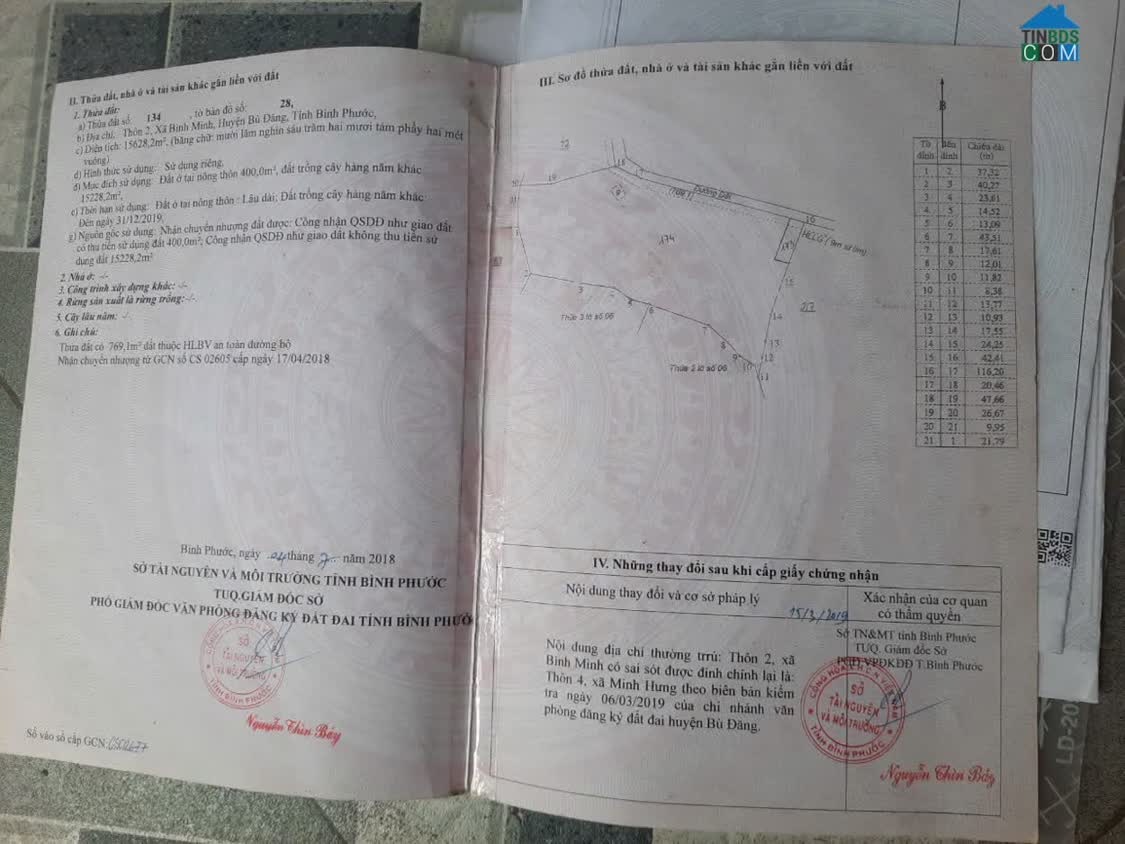 TINBDS
COM
II. Thửa đất, nhà ở và tài sản khác gắn liền với đất
1. Thửa đất:
a) Thửa đất số: 134 , tờ bản đồ số: 28,
b) Địa chỉ: Thôn 2, Xã Bình Minh, Huyện Bù Đăng, Tỉnh Bình Phước,
c) Diện tích: 15628,2m², (bằng chữ: mười lăm nghìn sáu trăm hai mươi tám phẩy hai mét
vuông)
d) Hình thức sử dụng: Sử dụng riêng,
đ) Mục đích sử dụng: Đất ở tại nông thôn 400,0m², đất trồng cây hàng năm khác
15228,2m²,
e) Thời hạn sử dụng: Đất ở tại nông thôn : Lâu dài; Đất trồng cây hàng năm khác
Đến ngày 31/12/2019,
g) Nguồn gốc sử dụng: Nhận chuyển nhượng đất được: Công nhận QSDĐ như giao đất
có thu tiền sử dụng đất 400,0m²; Công nhận QSDĐ như giao đất không thu tiền sử
dụng đất 15228,2m²
2. Nhà ở: -/-
3. Công trình xây dựng khác: -/-
4. Rừng sản xuất là rừng trồng: -/-.
5. Cây lâu năm: -/-
6. Ghi chú:
Thửa đất có 769,1m² đất thuộc HLBV an toàn đường bộ
Nhận chuyển nhượng từ GCN số CS 02605 cấp ngày 17/04/2018
Bình Phước, ngày 04 tháng 7 năm 2018
SỞ TÀI NGUYÊN VÀ MÔI TRƯỜNG TỈNH BÌNH PHƯỚC
TUQ.GIÁM ĐỐC SỞ
PHÓ GIÁM ĐỐC VĂN PHÒNG ĐĂNG KÝ ĐẤT ĐAI TỈNH BÌNH PHƯỚ
SỞ
TÀI NGUYÊN
VÀ MÔI TRƯỜNG
TỈNH BÌNH PHƯỚC
Nguyễn Thìn Bảy
Số vào sổ cấp GCN:
III. Sơ đồ thửa đất, nhà ở và tài sản khác gắn liền với đất
B
Đường Đất
HLLG (9m từ tim)
174
173
217
Thửa 3 tờ số 06
Thửa 2 tờ số 06
Từ đỉnh Đến đỉnh Chiều dài (m)
1 2 37,32
2 3 40,27
3 4 23,61
4 5 14,52
5 6 13,09
6 7 43,51
7 8 17,61
8 9 12,01
9 10 11,82
10 11 8,38
11 12 13,77
12 13 10,93
13 14 17,55
14 15 24,25
15 16 42,41
16 17 116,20
17 18 20,46
18 19 47,66
19 20 26,67
20 21 9,95
21 1 21,79
IV. Những thay đổi sau khi cấp giấy chứng nhận
Nội dung thay đổi và cơ sở pháp lý
Xác nhận của cơ quan
có thẩm quyền
15/3/2019
Nội dung địa chỉ thường trrú: Thôn 2, xã
Bình Minh có sai sót được đính chính lại là:
Thôn 4, xã Minh Hưng theo biên bản kiểm
tra ngày 06/03/2019 của chi nhánh văn
phòng đăng ký đất đai huyện Bù Đăng.
Sở TN&MT tỉnh Bình Phước
TUQ. Giám đốc Sở
PGĐ VPĐKĐĐ T.Bình Phước
CỘNG HÒA X.H.C.N VIỆT NAM
SỞ
TÀI NGUYÊN
VÀ MÔI TRƯỜNG
TỈNH BÌNH PHƯỚC
Nguyễn Thìn Bảy